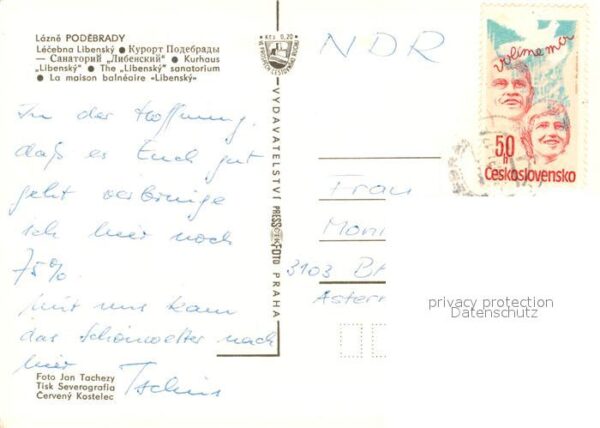 Lázně PODĚBRADY
Léčebna Libenský ● Курорт Подебрады
— Санаторий „Либенский" ● Kurhaus
„Libenský" ● The „Libenský" sanatorium
● La maison balnéaire «Libenský»
Kčs 0,20
NDR
volíme mír
50 h
Československo
In der Hoffnung,
daß es Euch gut
geht verbringe
ich hier noch
75%.
Mit uns kam
das Schönwetter nach
hier
VYDAVATELSTVÍ PRESSFOTO PRAHA
Frau
Moni
3103 BA
Aster
privacy protection
Datenschutz
Foto Jan Tachezy
Tisk Severografia
Červený Kostelec